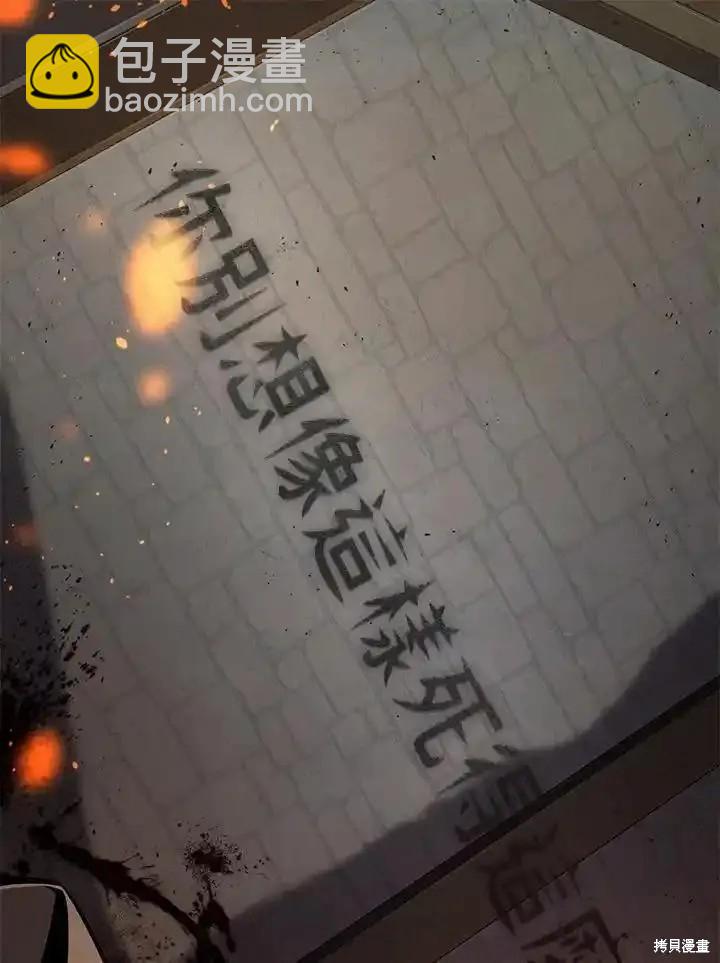 包子漫畫
baozimh.com
你別想像這樣死得這麼
拷貝漫畫